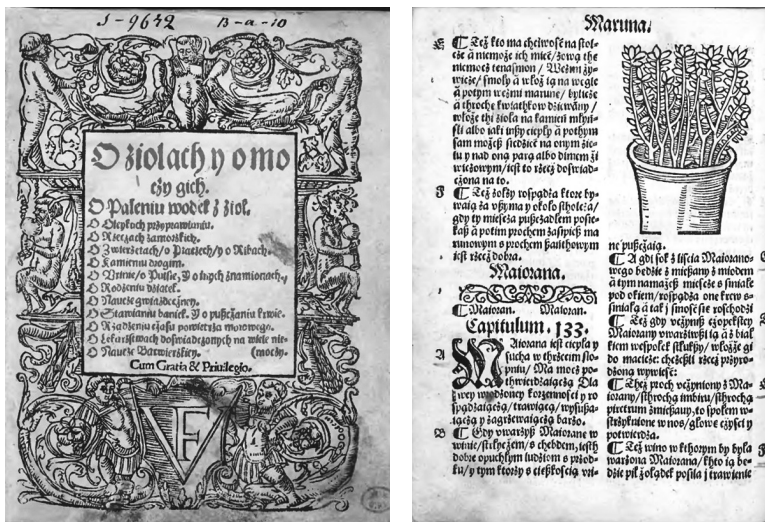 S-9632 B-a-10
O ziolach y o mo
czy gich.
O Paleniu wodek z ziol.
O Oleykoch przyprawianiu.
O Rzeczach zamorskich.
O Zwierzętach / o Ptacech / y o Ribach.
O Kamieniu drogim.
O Urinie / o Pulsie / y o inych znamionach.
O Rodzeniu dziatek.
O Nauce gwiazdeczney.
O Stawianiu baniek. Y o pusczaniu krwie.
O Rządzeniu czasu powietrza morowego.
O Lekarstwach doswiadczonych na wiele nie-
O Nauce Barwierskiey. (moczy.
Cum Gratia & Priuilegio.
VF
Maruna.
E ¶ Też kto ma chciwość na stol-
cże á niemoże ich mieć / zową thę
niemoc tenasmon / Weźmi ży-
wicże / smoły á włoż ią na węgle
á potym weźmi marunę / bylicże
á throchę kwiathkow dziewány /
włoże thi zioła na kamień młyń-
ski albo iaki inszy ciepły á pothym
sam możesz siedzieć na onym ziel-
u y nad oną parą albo dimem ży
wicżowym / iest to rzecz doswiad-
czona na to.
F ¶ Też żołzy rospądza ktore by-
waią za vszyma y około stholca /
gdy ty mieysca pusczadłem posie-
kasz á potim prochem zasipiesz ma
runowym s prochem haithowym
iest rzecz dobra.
Maiorana.
¶ Maioran. Maioran.
Capitulum. 133.
A Maiorana iest ciepła y
sucha w thrzecim sto-
pniu / Ma moc po-
thwierdzaiączą Dla
swey wrodzoney korzenności y ro
spądzaiączą / trawiączą / wysusza-
iączą y zagrzewaiączą barzo.
B ¶ Gdy vwarzysz Maioranę w
winie / s tłuczem / s chebdem, iesth
dobre opuchłym ludziom s przod-
ku / y tym ktorzy s cięszkoscią vri-
nę pusczaią.
¶ A gdi sok z liścia Maiorano-
wego będzie z mieszany z miodem
á tym namażesz mieysce s siniałe
pod okiem / rospądza onę krew s-
siniałą á tak j smość sie roschodzi
¶ Też gdy vczynisz czopek stey
Maiorany vwarziwszi ią á z biał
kiem wespołek stłukszy / włożże gi
do macice: chczeszli rzecz przyro-
dzoną wywieść:
¶ Theż proch vczyniony z Ma-
iorany / sthrochą imbiru / sthrochą
piretrum zmieszany, to społem w-
strzyknione w nos / głowę czysci y
potwierdza.
¶ Też wino w kthorym by była
warzona Maiorana / khto ią bę-
dzie pił żołądek posila j trawienie